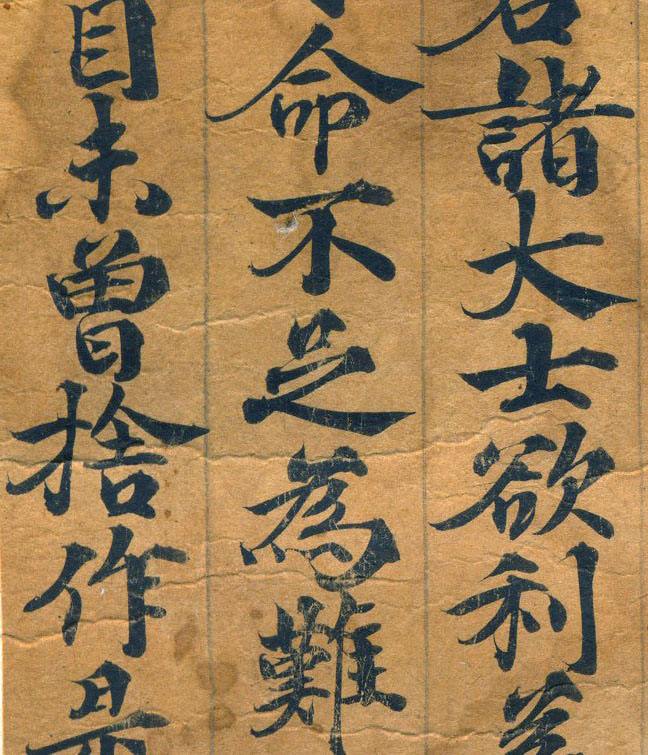 若諸大士欲利
命不足為難
目未曾捨作是